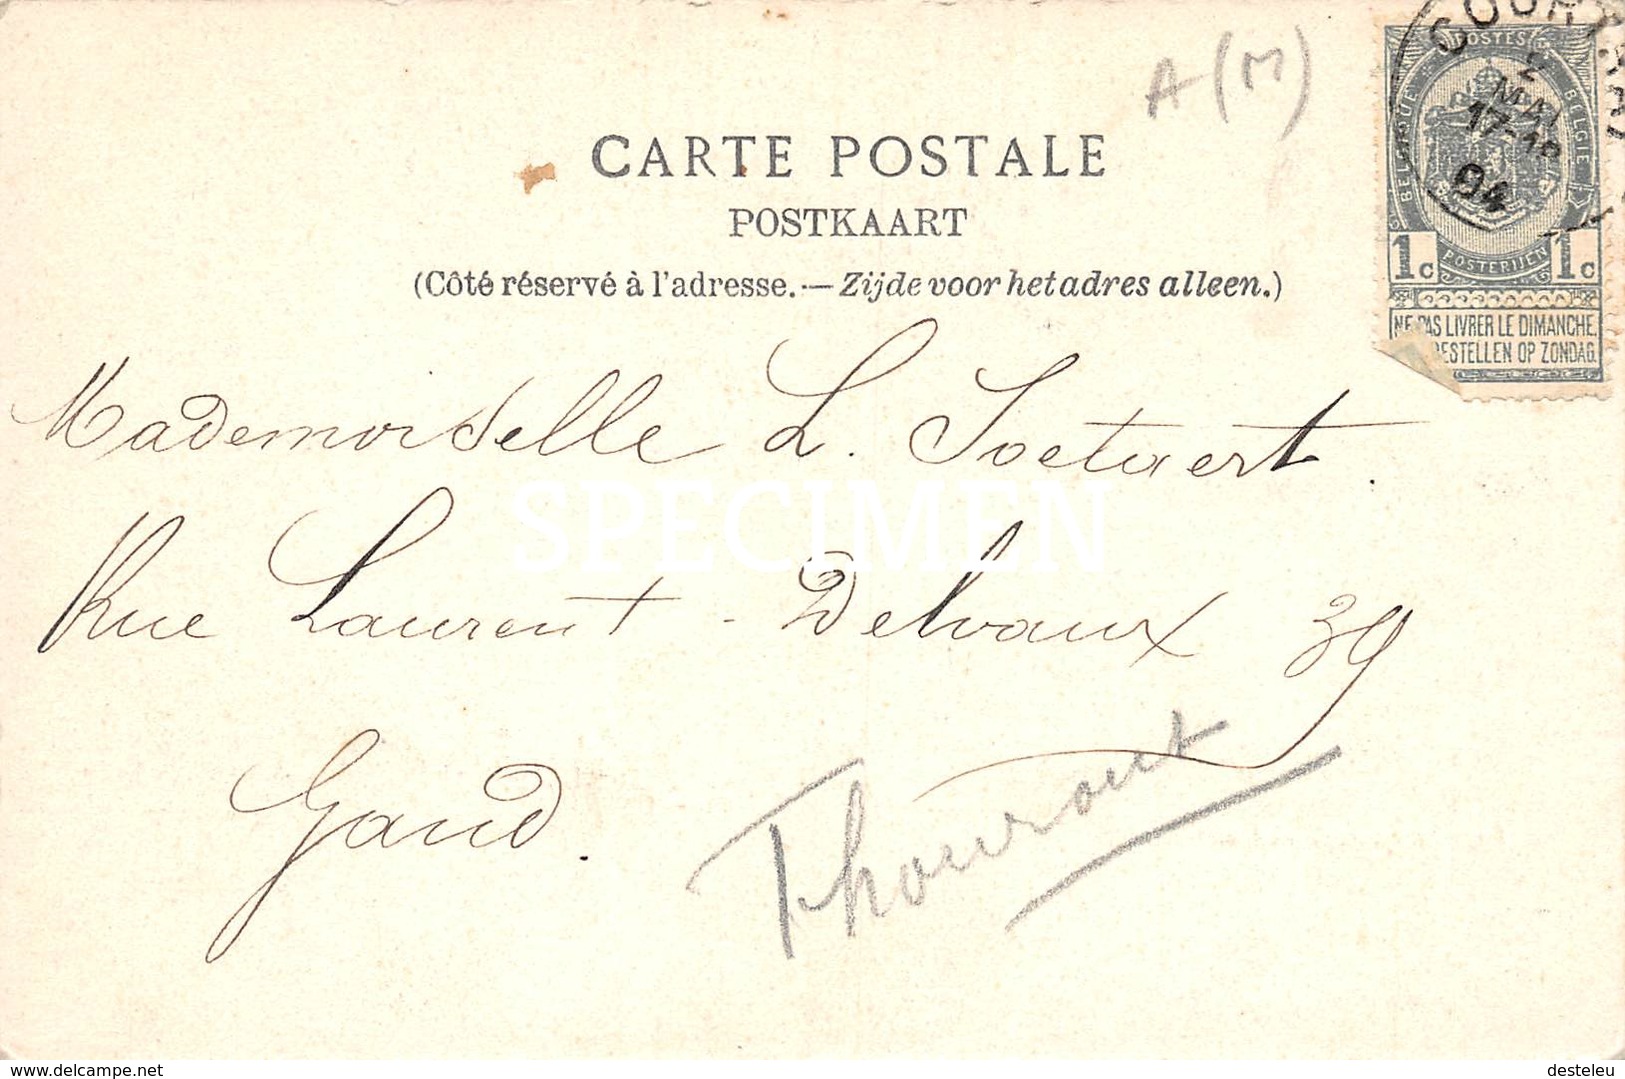 A (M)
COURTRAI
2 MAI
17-18
04
POSTES
BELGIQUE
BELGIE
1c 1c
POSTERIJEN
NE PAS LIVRER LE DIMANCHE
BESTELLEN OP ZONDAG
CARTE POSTALE
POSTKAART
(Côté réservé à l'adresse.—Zijde voor het adres alleen.)
Mademoiselle L. Soetaert.
Rue Laurent-Delvaux 39
Gand.
Thourout
SPECIMEN
https://www.delcampe.net
desteleu